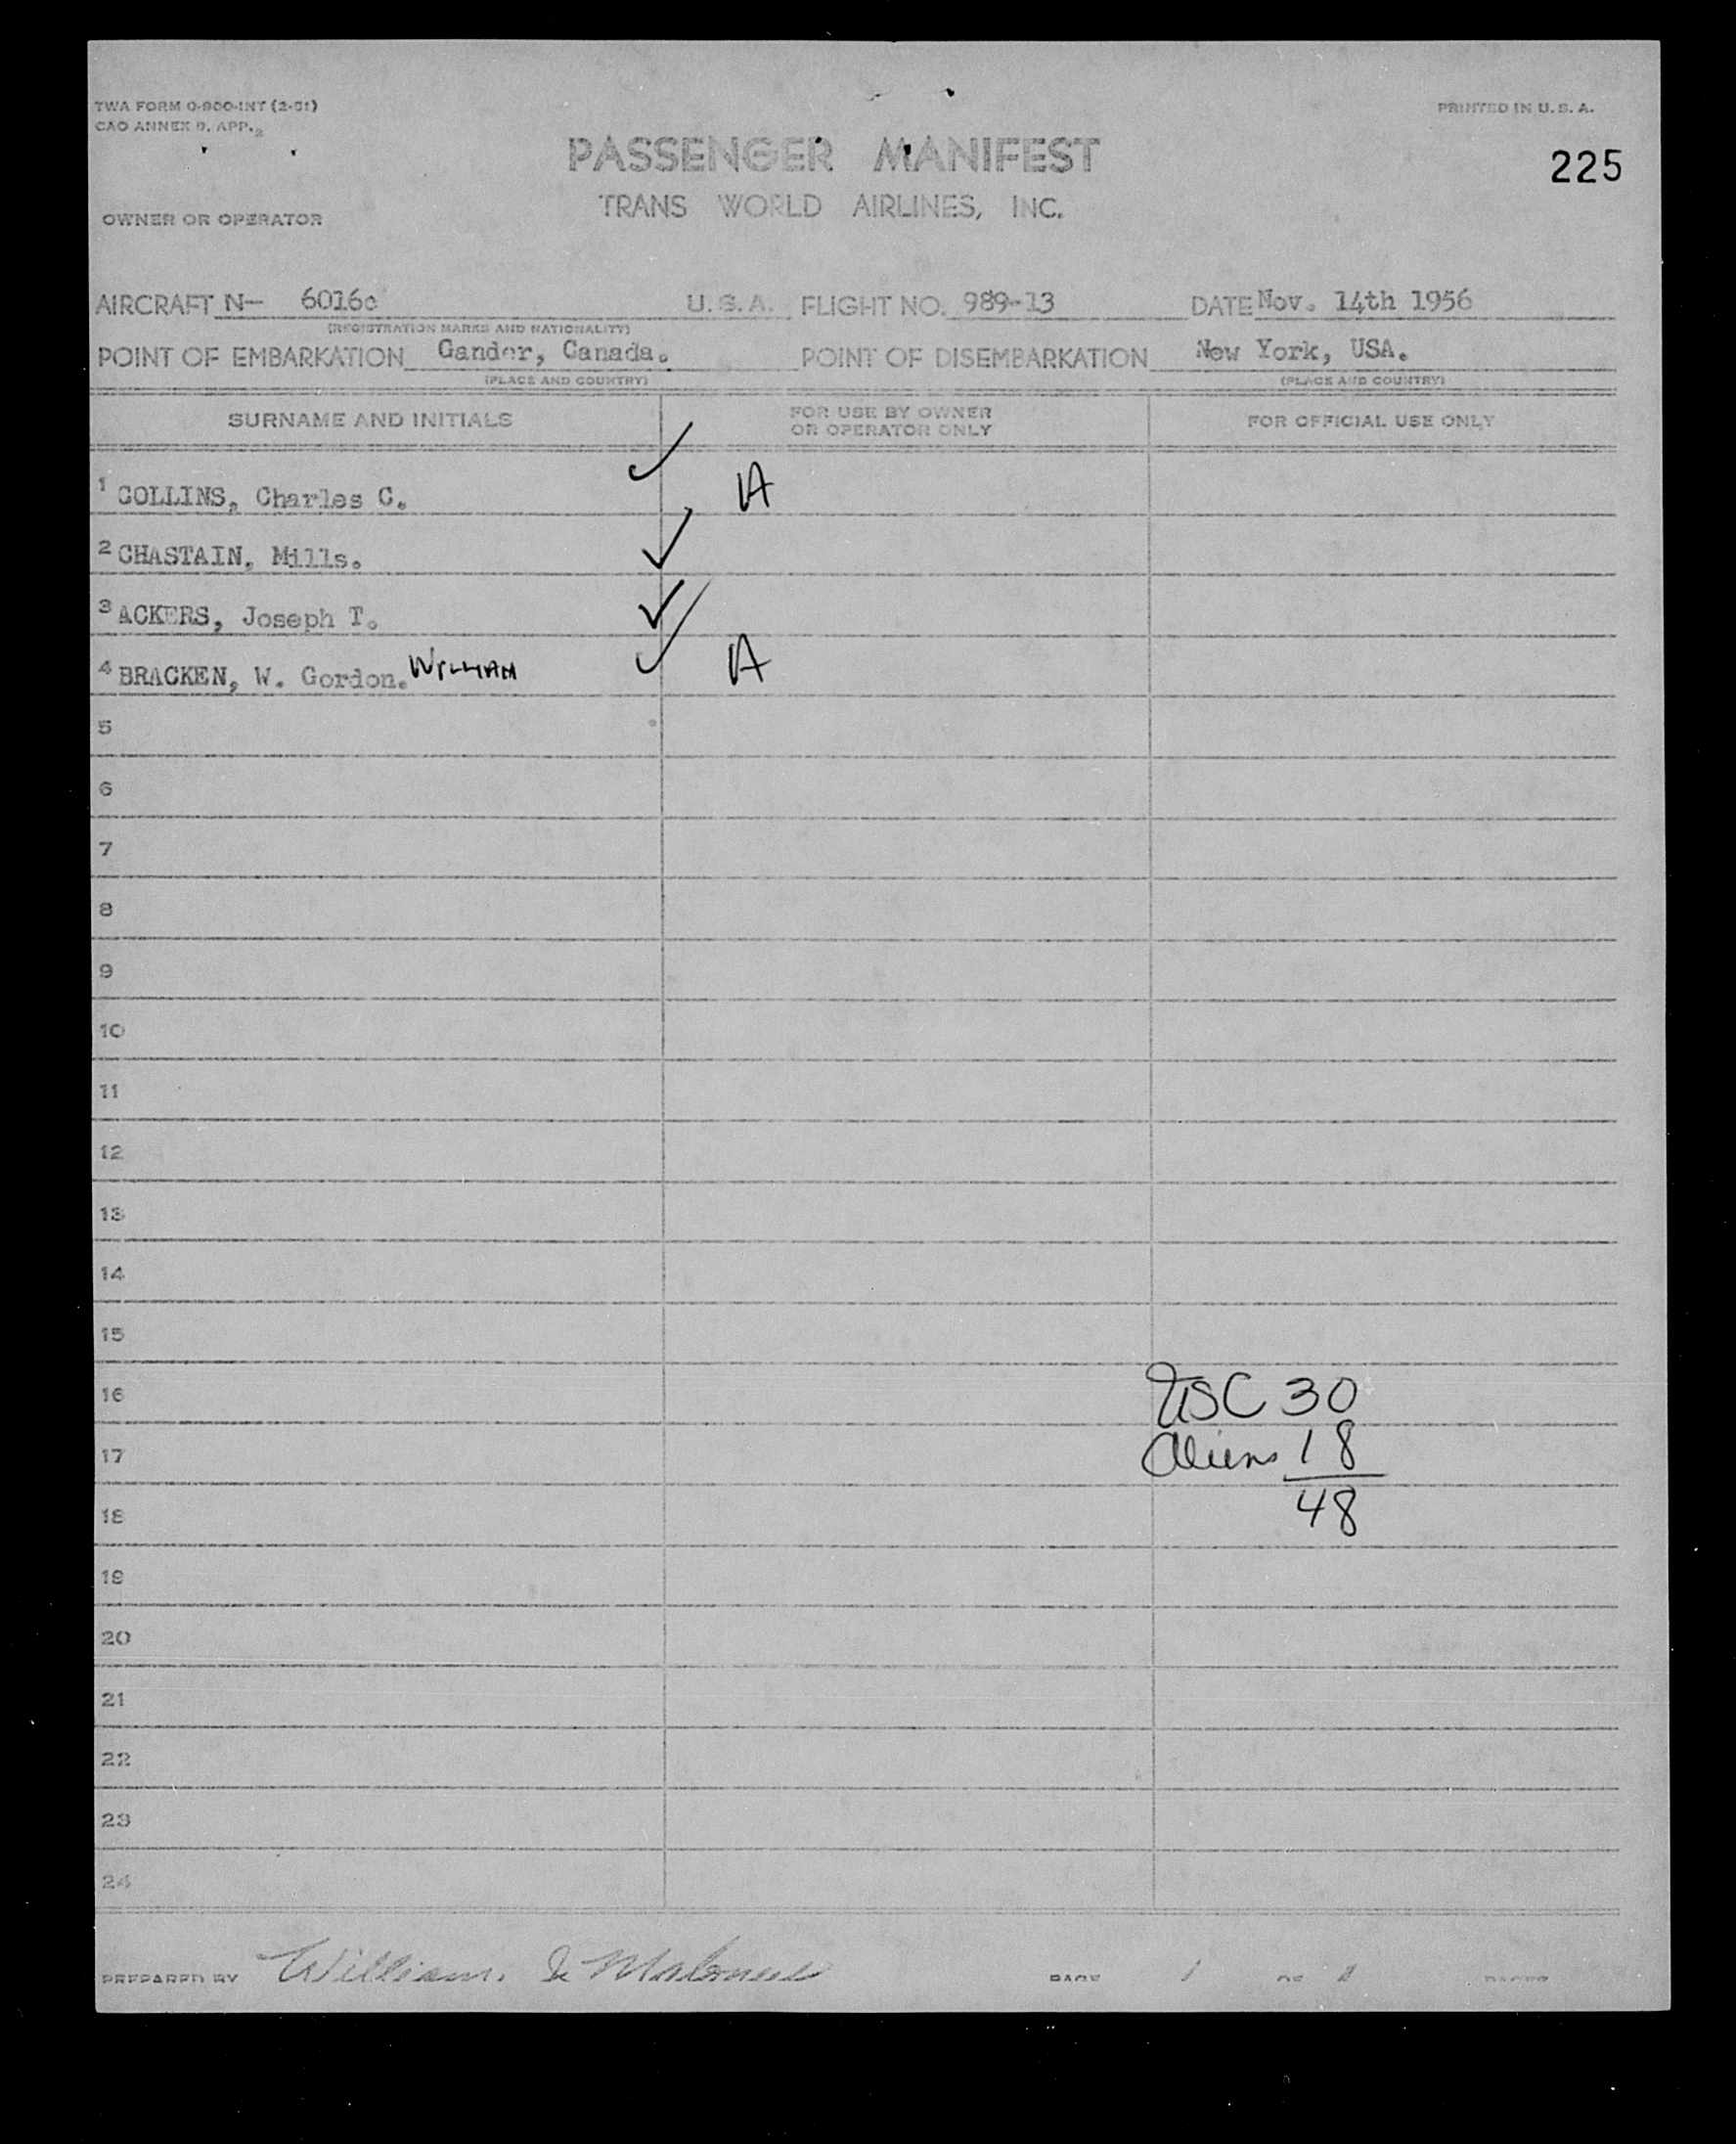 TWA FORM O-800-INT (2-51)
PRINTED IN U. S. A.
CAO ANNEX 9, APP. 2
PASSENGER MANIFEST
225
TRANS WORLD AIRLINES, INC.
OWNER OR OPERATOR
AIRCRAFT N- 6016c U. S. A. FLIGHT NO. 989-13 DATE Nov. 14th 1956
(REGISTRATION MARKS AND NATIONALITY)
POINT OF EMBARKATION Gander, Canada. POINT OF DISEMBARKATION New York, USA.
(PLACE AND COUNTRY) (PLACE AND COUNTRY)
SURNAME AND INITIALS FOR USE BY OWNER OR OPERATOR ONLY FOR OFFICIAL USE ONLY
1 COLLINS, Charles C. ✓ A
2 CHASTAIN, Mills. ✓
3 ACKERS, Joseph T. ✓
4 BRACKEN, W. Gordon. WILLIAM ✓ A
5
6
7
8
9
10
11
12
13
14
15
16 USC 30
17 Aliens 18
18 48
19
20
21
22
23
24
PREPARED BY William. PAGE 1 OF PAGES